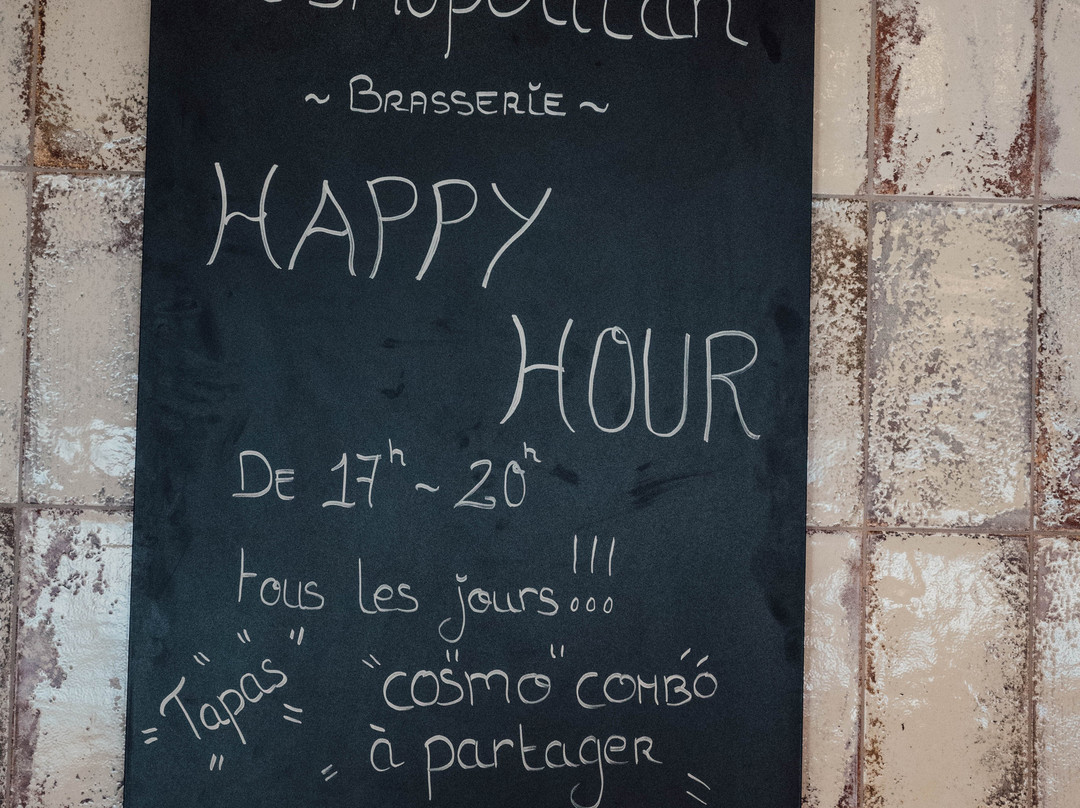 Cosmopolitan
~ BRASSERIE ~
HAPPY
HOUR
DE 17h ~ 20h
tous les jours!!!
Tapas
"COSMO" COMBO
à partager